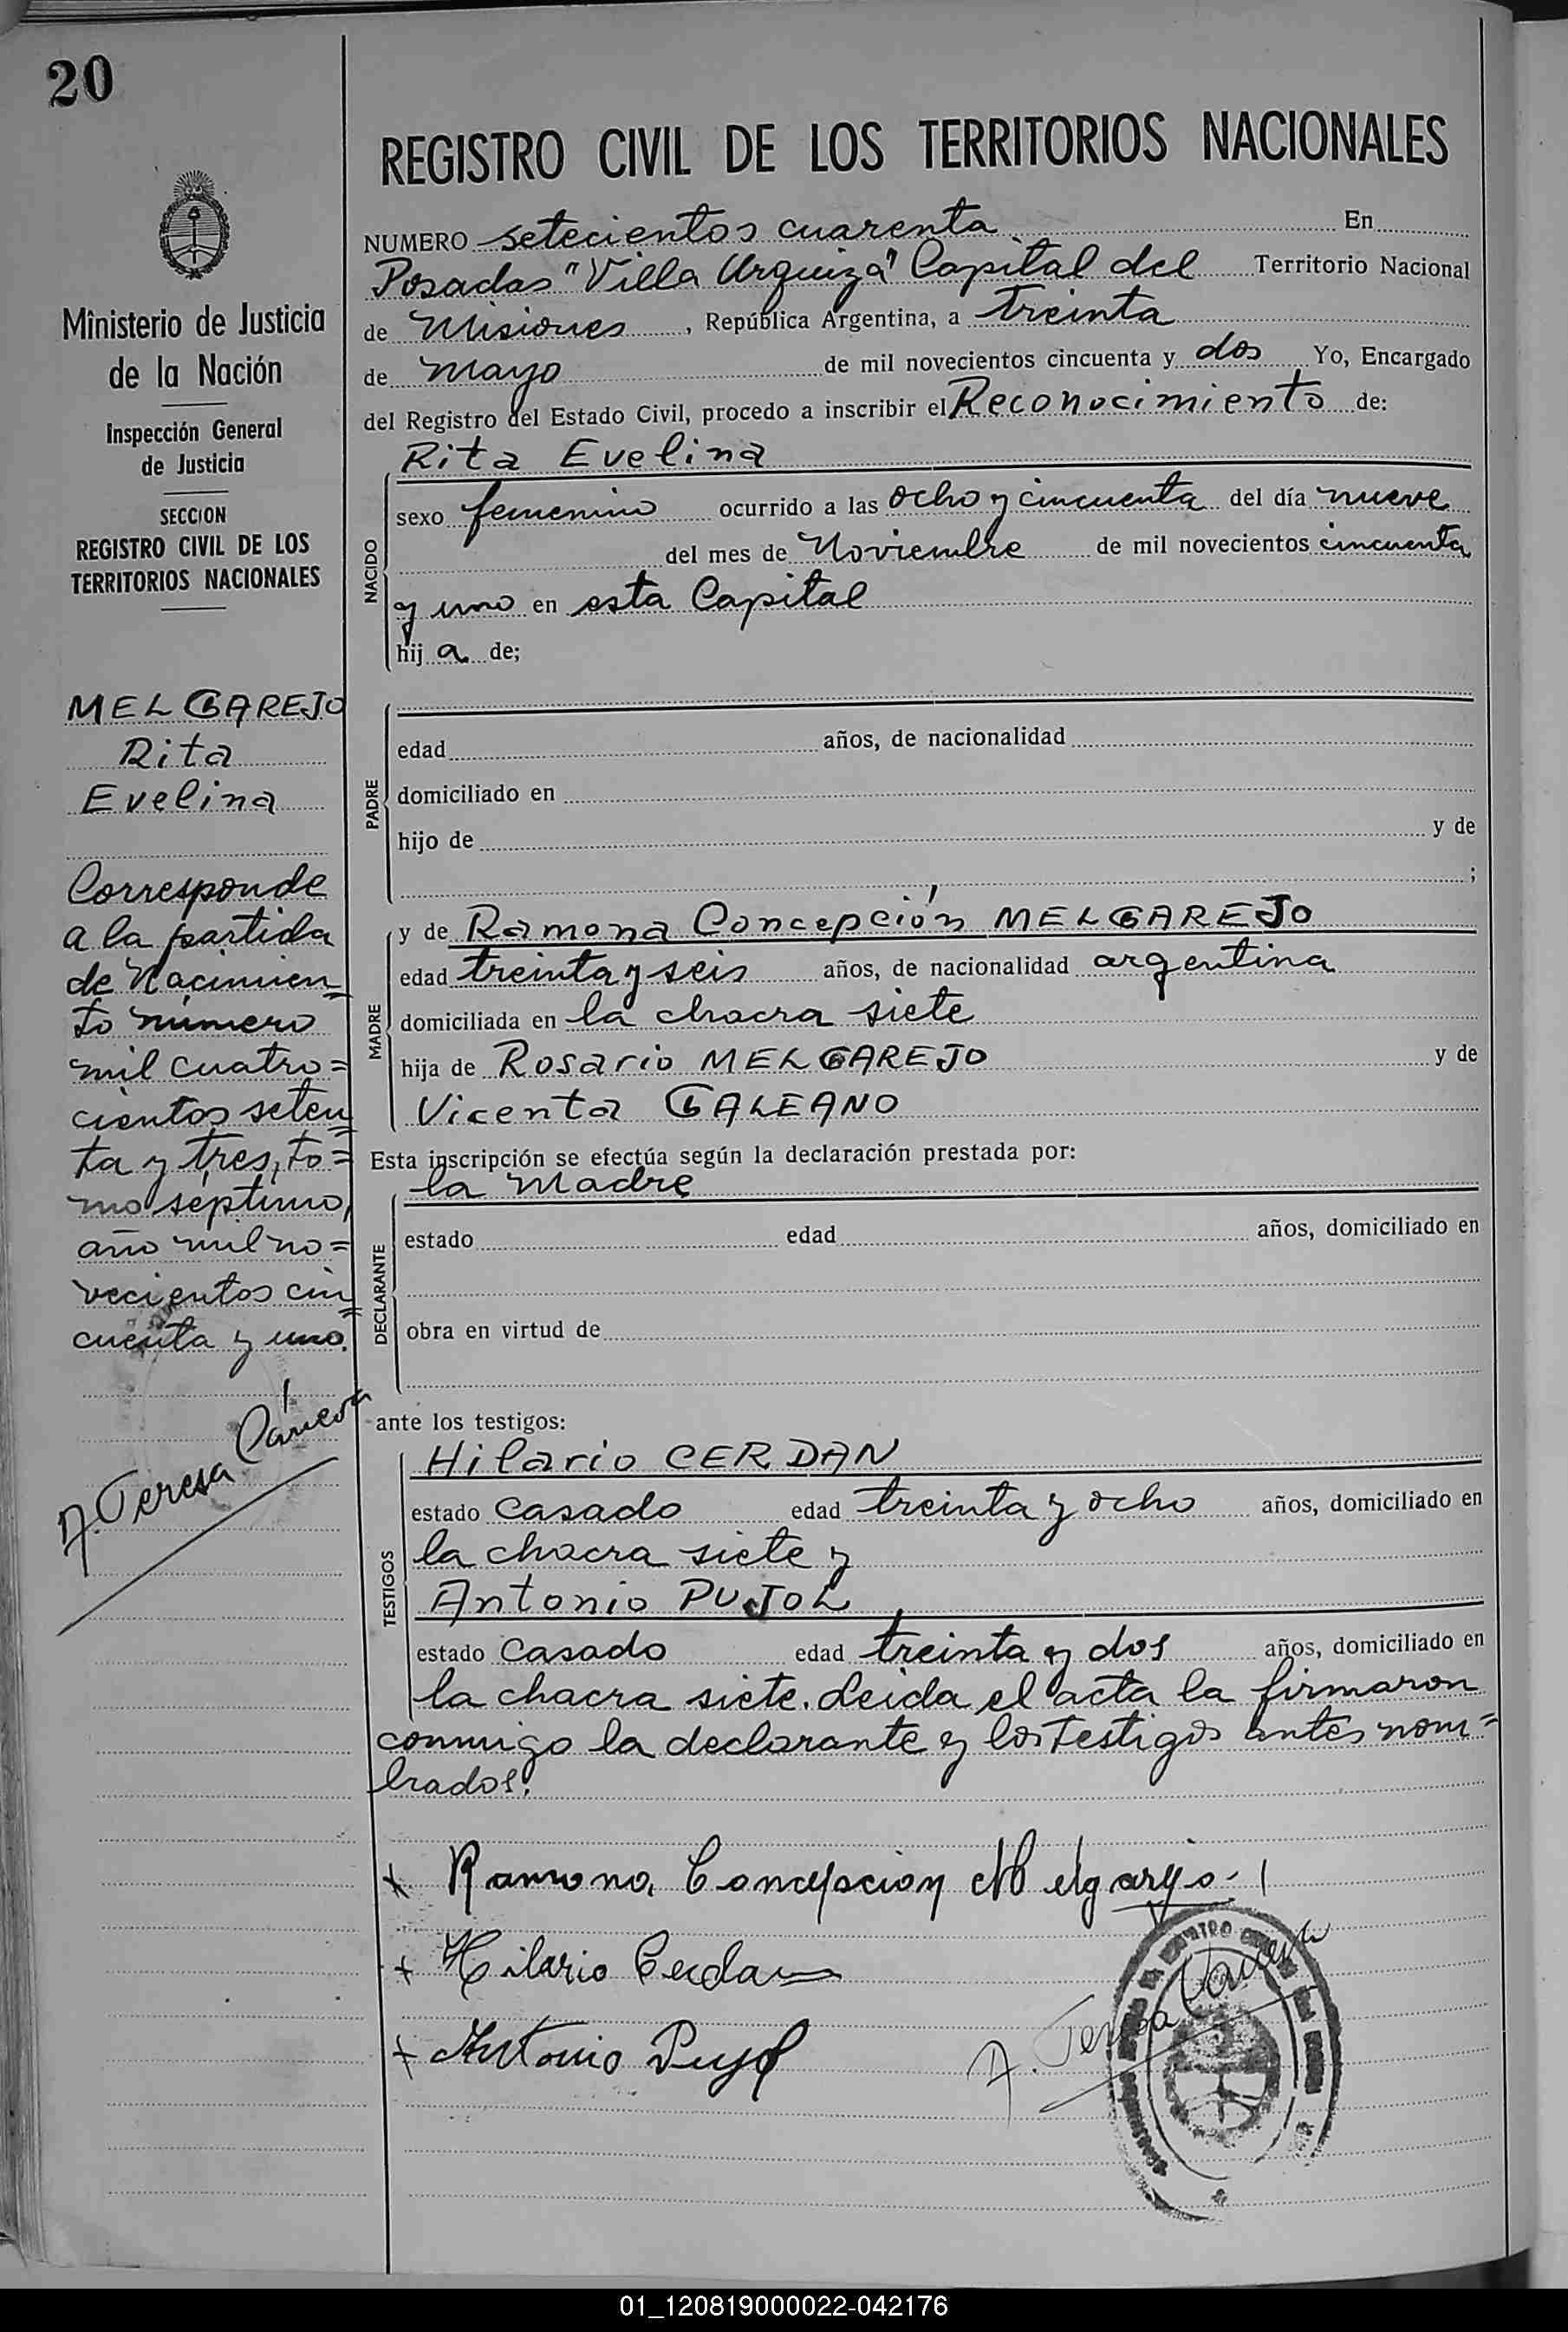 20
REGISTRO CIVIL DE LOS TERRITORIOS NACIONALES
Ministerio de Justicia
de la Nación
Inspección General
de Justicia
SECCION
REGISTRO CIVIL DE LOS
TERRITORIOS NACIONALES
MELGAREJO
Rita
Evelina
Corresponde
a la partida
de Nacimien=
to número
mil cuatro=
cientos seten=
ta y tres, to=
mo séptimo,
año mil no=
vecientos cin=
cuenta y uno.
A. Teresa
NUMERO setecientos cuarenta En
Posadas "Villa Urquiza" Capital del Territorio Nacional
de Misiones, República Argentina, a treinta
de mayo de mil novecientos cincuenta y dos Yo, Encargado
del Registro del Estado Civil, procedo a inscribir el Reconocimiento de:
Rita Evelina
NACIDO
sexo femenino ocurrido a las ocho y cincuenta del día nueve
del mes de Noviembre de mil novecientos cincuenta
y uno en esta Capital
hij a de;
PADRE
edad años, de nacionalidad
domiciliado en
hijo de y de
;
MADRE
y de Ramona Concepción MELGAREJO
edad treinta y seis años, de nacionalidad argentina
domiciliada en la chacra siete
hija de Rosario MELGAREJO y de
Vicenta GALEANO
Esta inscripción se efectúa según la declaración prestada por:
la Madre
DECLARANTE
estado edad años, domiciliado en
obra en virtud de
ante los testigos:
TESTIGOS
Hilario CERDAN
estado casado edad treinta y ocho años, domiciliado en
la chacra siete y
Antonio PUJOL
estado casado edad treinta y dos años, domiciliado en
la chacra siete. Leida el acta la firmaron
conmigo la declarante y los testigos antes nom=
brados.
x Ramona Concepcion Melgarejo
+ Hilario Cerdan
+ Antonio Pujol
A. Teresa
01_120819000022-042176